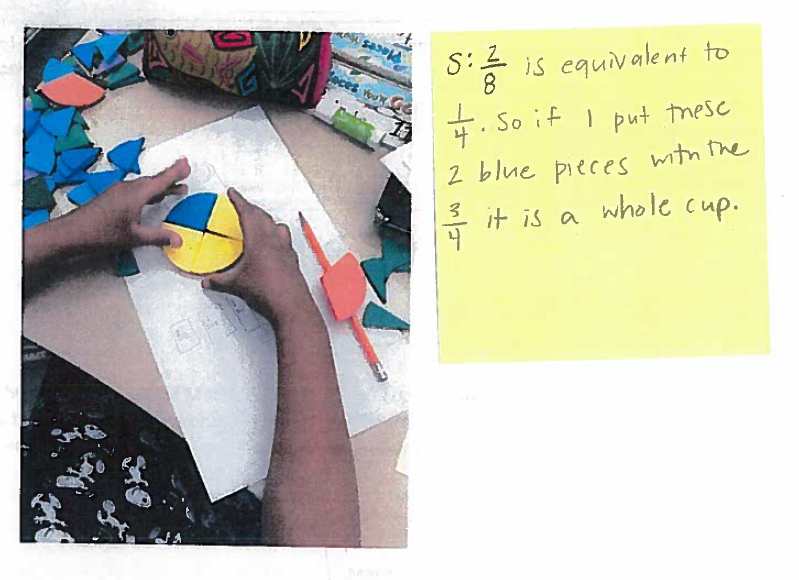 S: 2/8 is equivalent to
1/4. So if I put these
2 blue pieces with the
3/4 it is a whole cup.
should